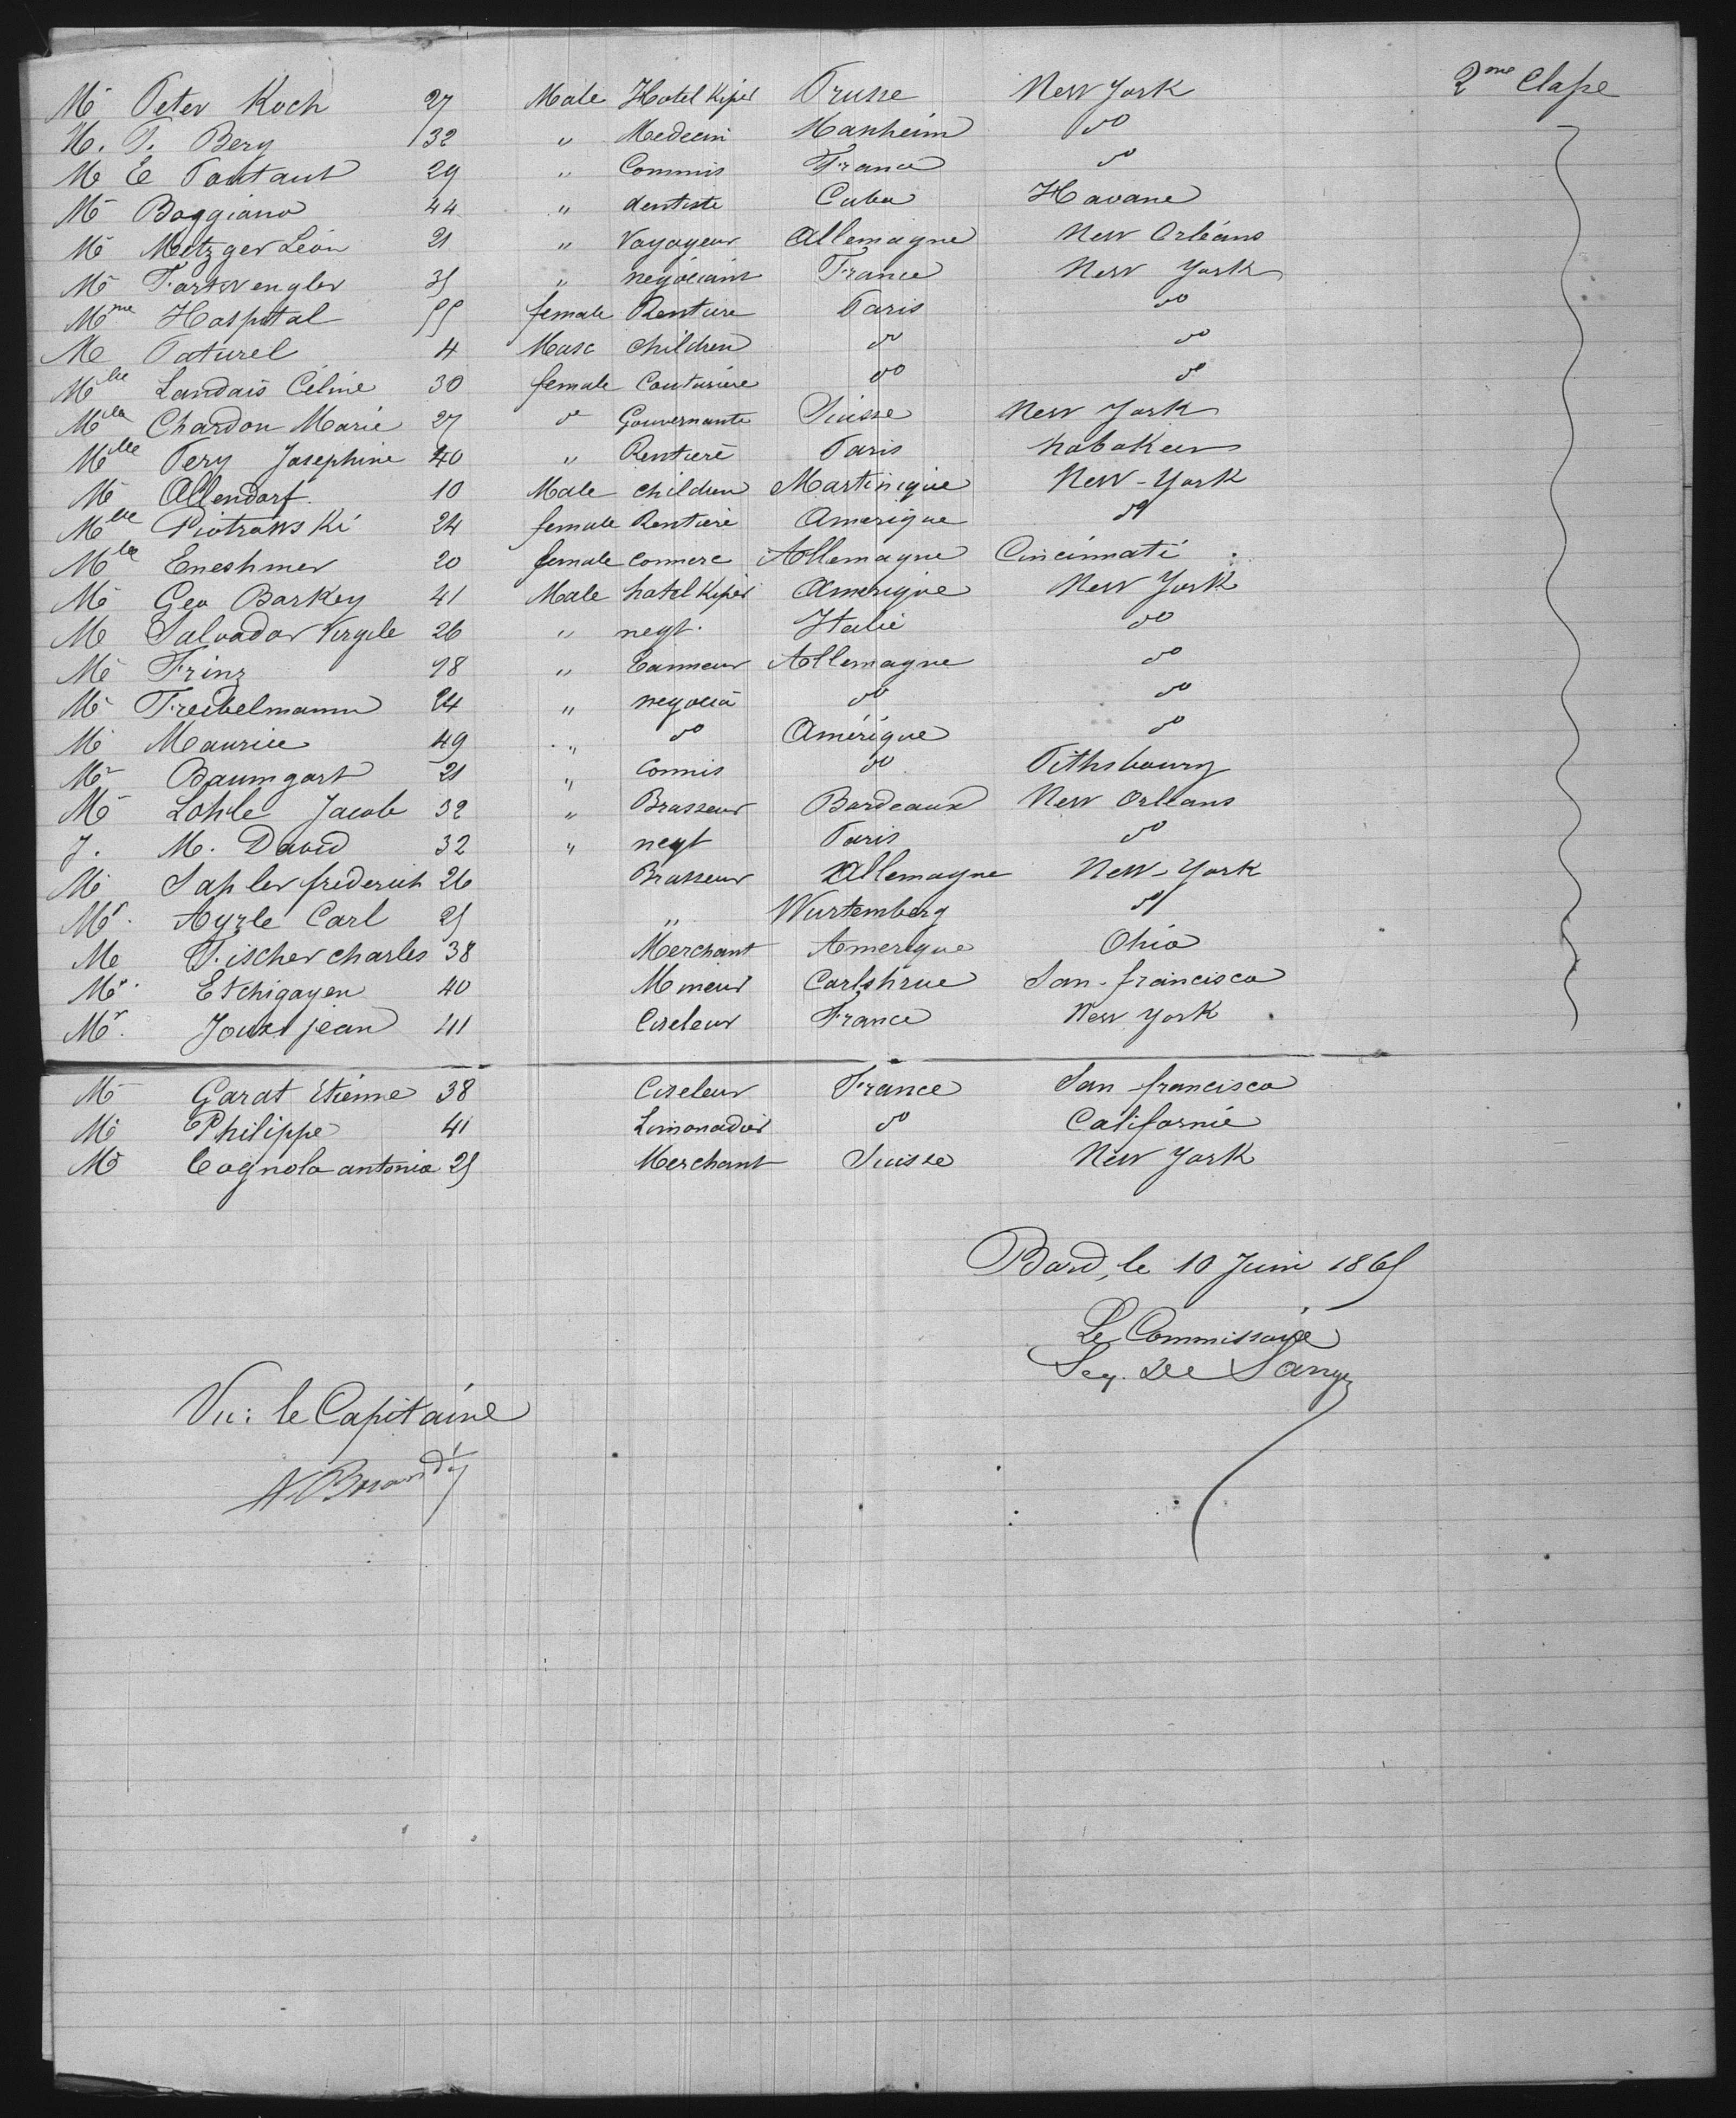 Mr Peter Koch 27 Male Hotel Kiper Prusse New York 2me Classe
M. P. Berg 32 " Medecin Manheim do
M E Toutant 29 " Commis France do
Mr Baggiano 44 " dentiste Cuba Havane
Mr Metzger Léon 21 " Voyageur Allemagne New Orléans
Mr Fortwengler 35 " negociant France New York
Mme Hospital 55 female Rentiere Paris do
M Paturel 4 Masc children do do
Mlle Landais Céline 30 female Couturière do do
Mlle Chardon Marie 27 do Gouvernante Suisse New York
Mlle Pery Josephine 40 " Rentiere Paris hoboken
Mr Allendorf 10 Male children Martinique New-York
Mlle Piotrowski 24 female Rentiere Amerique do
Mlle Eneshmer 20 female commerc Allemagne Cincinnati
Mr Geo Barkey 41 Male hotel Kiper Amerique New York
M Salvador Virgile 26 " negt. Italie do
Mr Frinz 18 " Tanneur Allemagne do
Mr Treibelmann 24 " negocia do do
Mr Maurice 49 " do Amérique do
Mr Baumgart 21 " Commis do Pithsbourg
Mr Lohle Jacob 32 " Brasseur Bordeaux New Orleans
J. M. David 32 " negt Paris do
Mr Sapler frederich 26 Brasseur Allemagne New-York
Mr. Ayrle Carl 25 " Wurtemberg do
M Fischer charles 38 Merchant Amerique Ohio
Mr. Etchigoyen 40 Mineur Carlshrue San-francisco
Mr. Joux jean 41 Ciseleur France New York
Mr Garat Etienne 38 Ciseleur France San francisco
Mr Philippe 41 Limonadier do Californie
Mr Cagnola antonio 25 Merchant Suisse New York
Bord, le 10 Juin 1865
Le Commissaire
Vu: le Capitaine